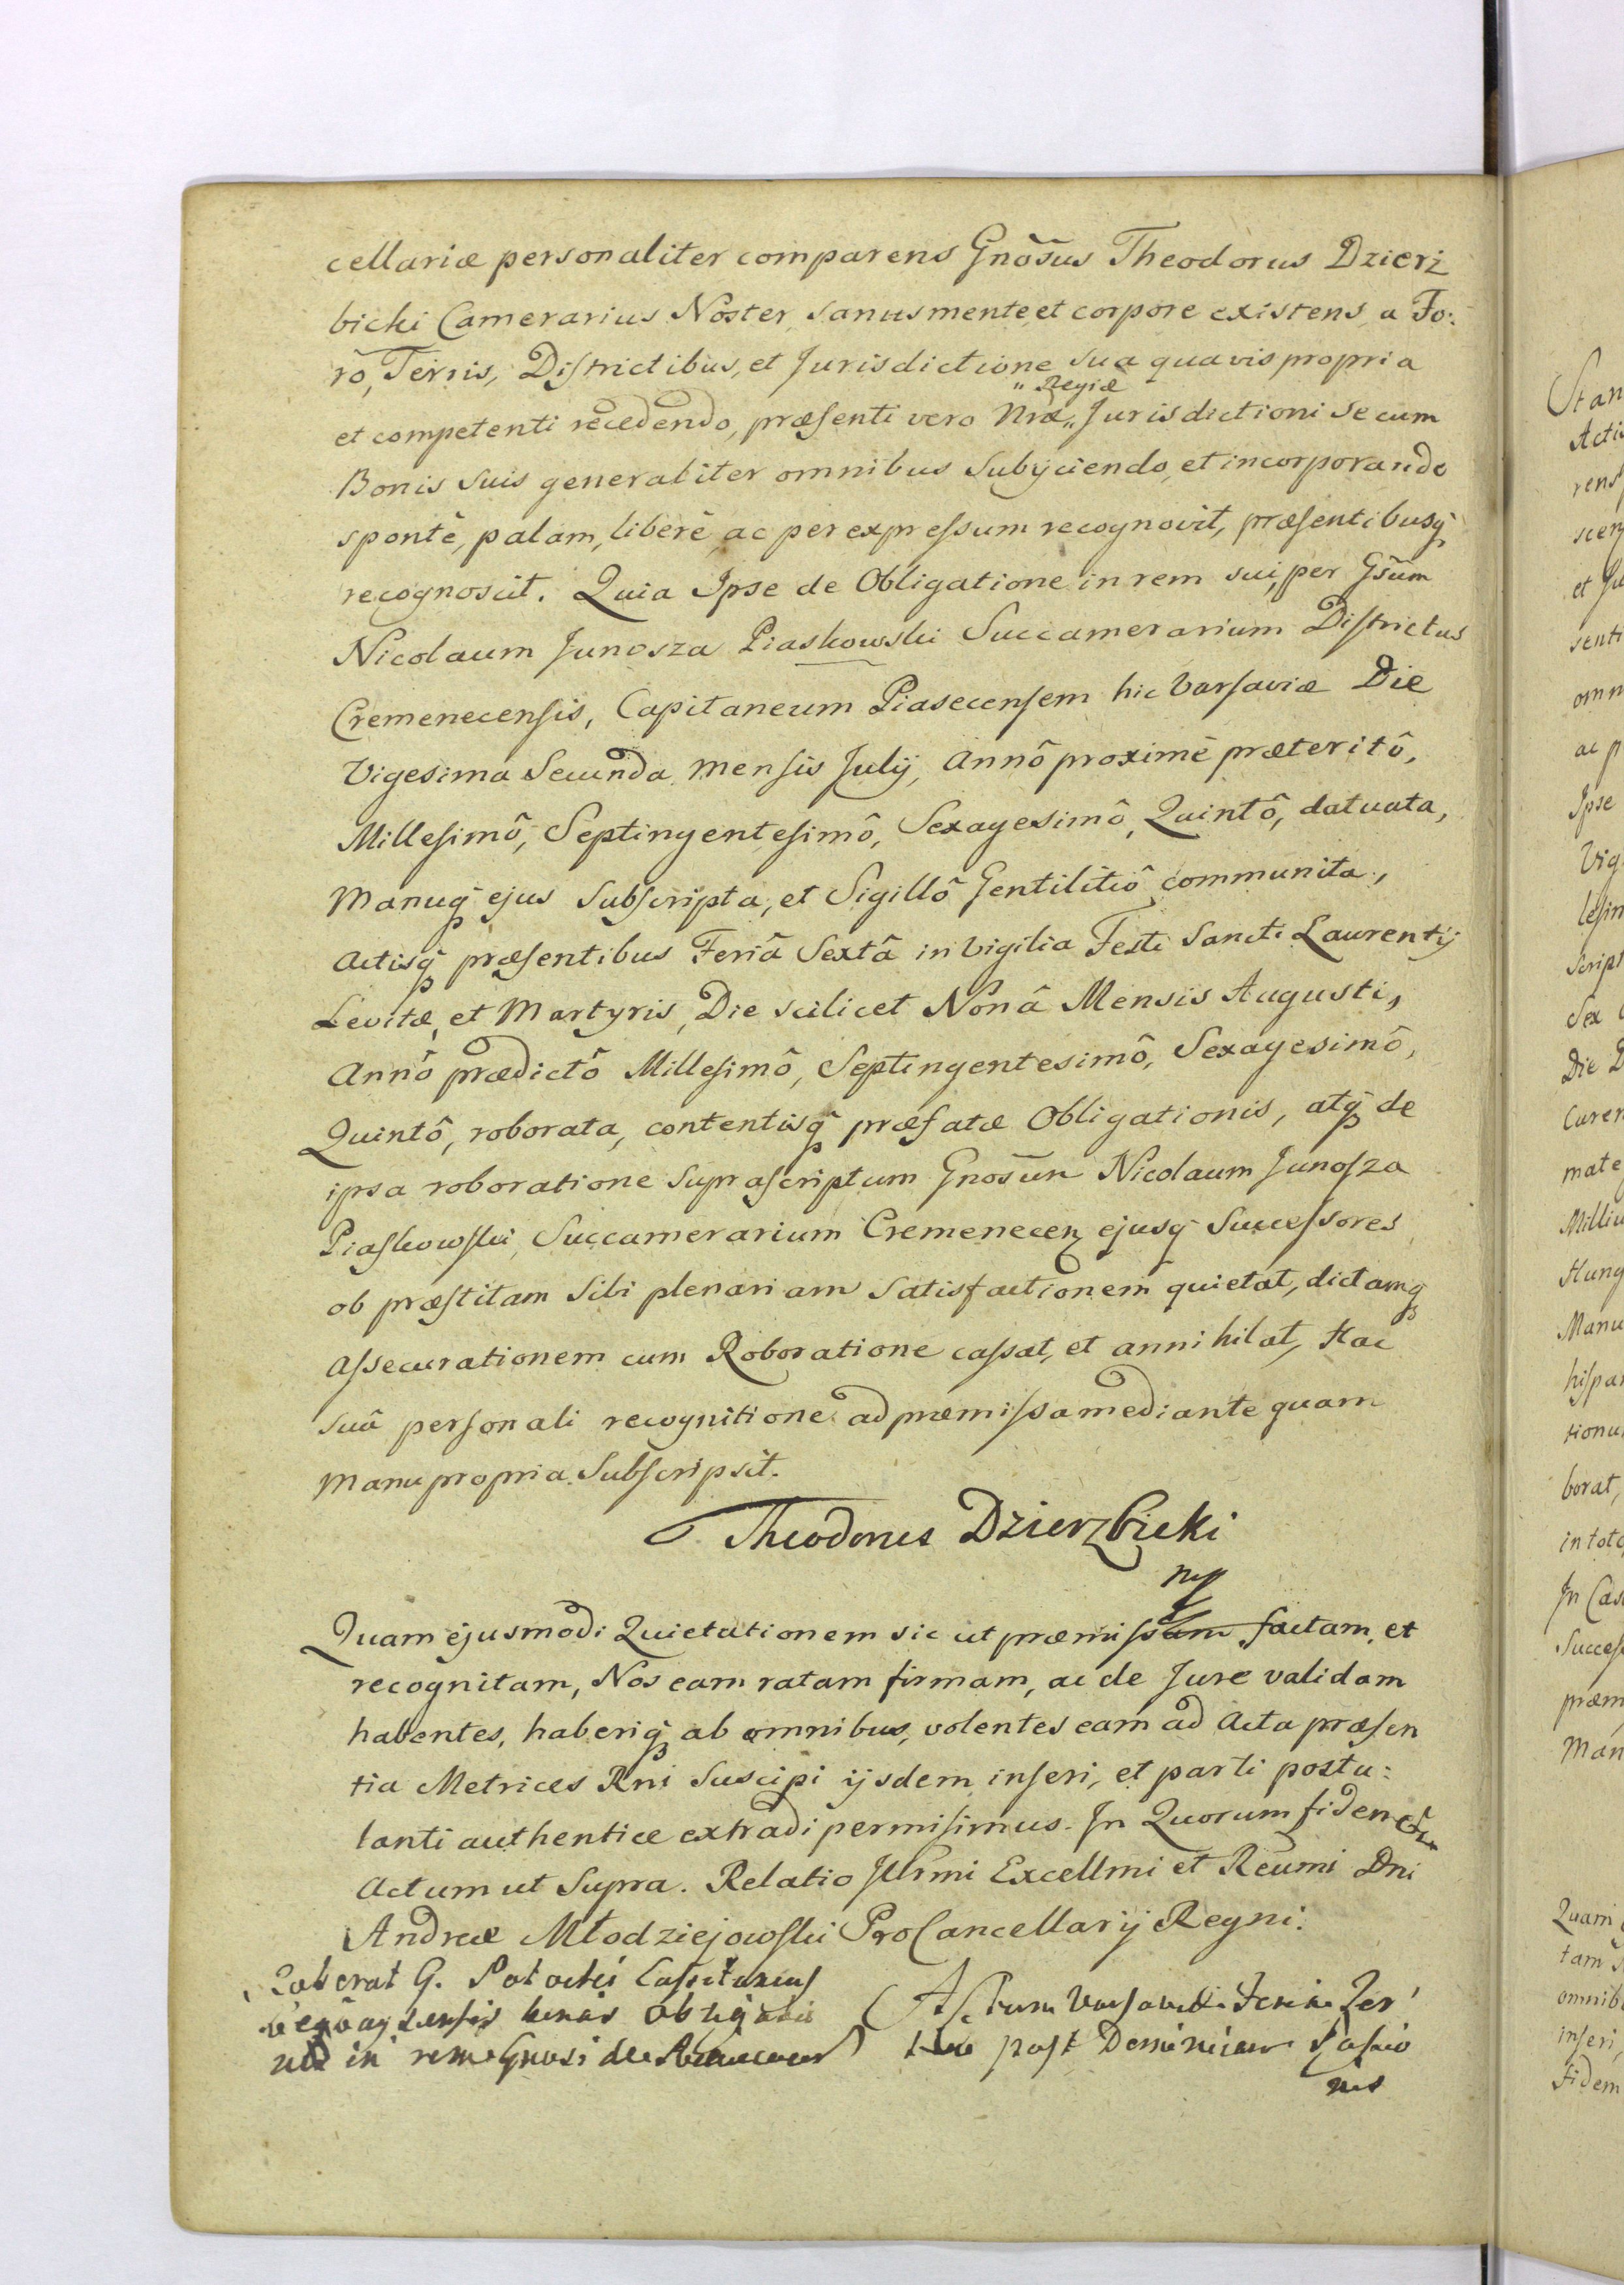 cellariæ personaliter comparens Gnõsus Theodorus Dzierż
bicki Camerarius Noster, sanus mente, et corpore existens, a Fo:
rô, Terris, Districtibus, et Jurisdictione sua quavis propria
et competenti recedendo, præsenti vero Nræ „Regiæ„ Jurisdictioni Se cum
Bonis Suis generaliter omnibus Subijciendo, et incorporando
spontè, palam, liberè, ac per expressum recognovit, præsentibusq̃
recognoscit. Quia Ipse de Obligatione in rem sui, per Gsũm
Nicolaum Junosza Piaskowski Succamerarium Districtus
Cremenecensis, Capitaneum Piasecensem hic Varsaviæ Die
Vigesima Secunda Mensis Julij, Annô proximè præteritô,
Millesimô, Septingentesimô, Sexagesimô, Quintô, datuata,
Manuq̃ ejus Subscripta, et Sigillô Gentilitiô communita,
Actisq̃ præsentibus Feriâ Sextâ in Vigilia Festi Sancti Laurentij
Levitæ, et Martyris, Die scilicet Nonâ Mensis Augusti,
Annô prædictô Millesimô, Septingentesimô, Sexagesimô,
Quintô, roborata, contentisq̃ præfatæ Obligationis, atq̃ de
ipsa roboratione Suprascriptum Gnosũm Nicolaum Junosza
Piaskowski, Succamerarium Cremenecen̄ ejusq̃ Successores
ob præstitam Sibi plenariam Satisfactionem quietat, dictamq̃
Assecurationem cum Roboratione cassat, et annihilat, Hac
Suâ personali recognitione ad præmissa mediante quam
Manu propria Subscripsit.
Theodorus Dzierzbicki
mp
Quam ejusmodi Quietationem sic ut præmissam factam, et
recognitam, Nos eam ratam firmam, ac de Jure validam
habentes, haberiq̃ ab omnibus, volentes eam ad Acta præsen
tia Metrices Rni Suscipi ijsdem inseri, et parti postu:
lanti authentice extradi permisimus. In Quorum fidem
Actum ut Supra. Relatio Illrmi Excellmi et Reumi Dni
Andreæ Młodziejowski ProCancellarij Regni.
Roberat G. Potocki
Actum Varsaviæ Feria
post Dominicam Passio
nis
in rem Gnosi de